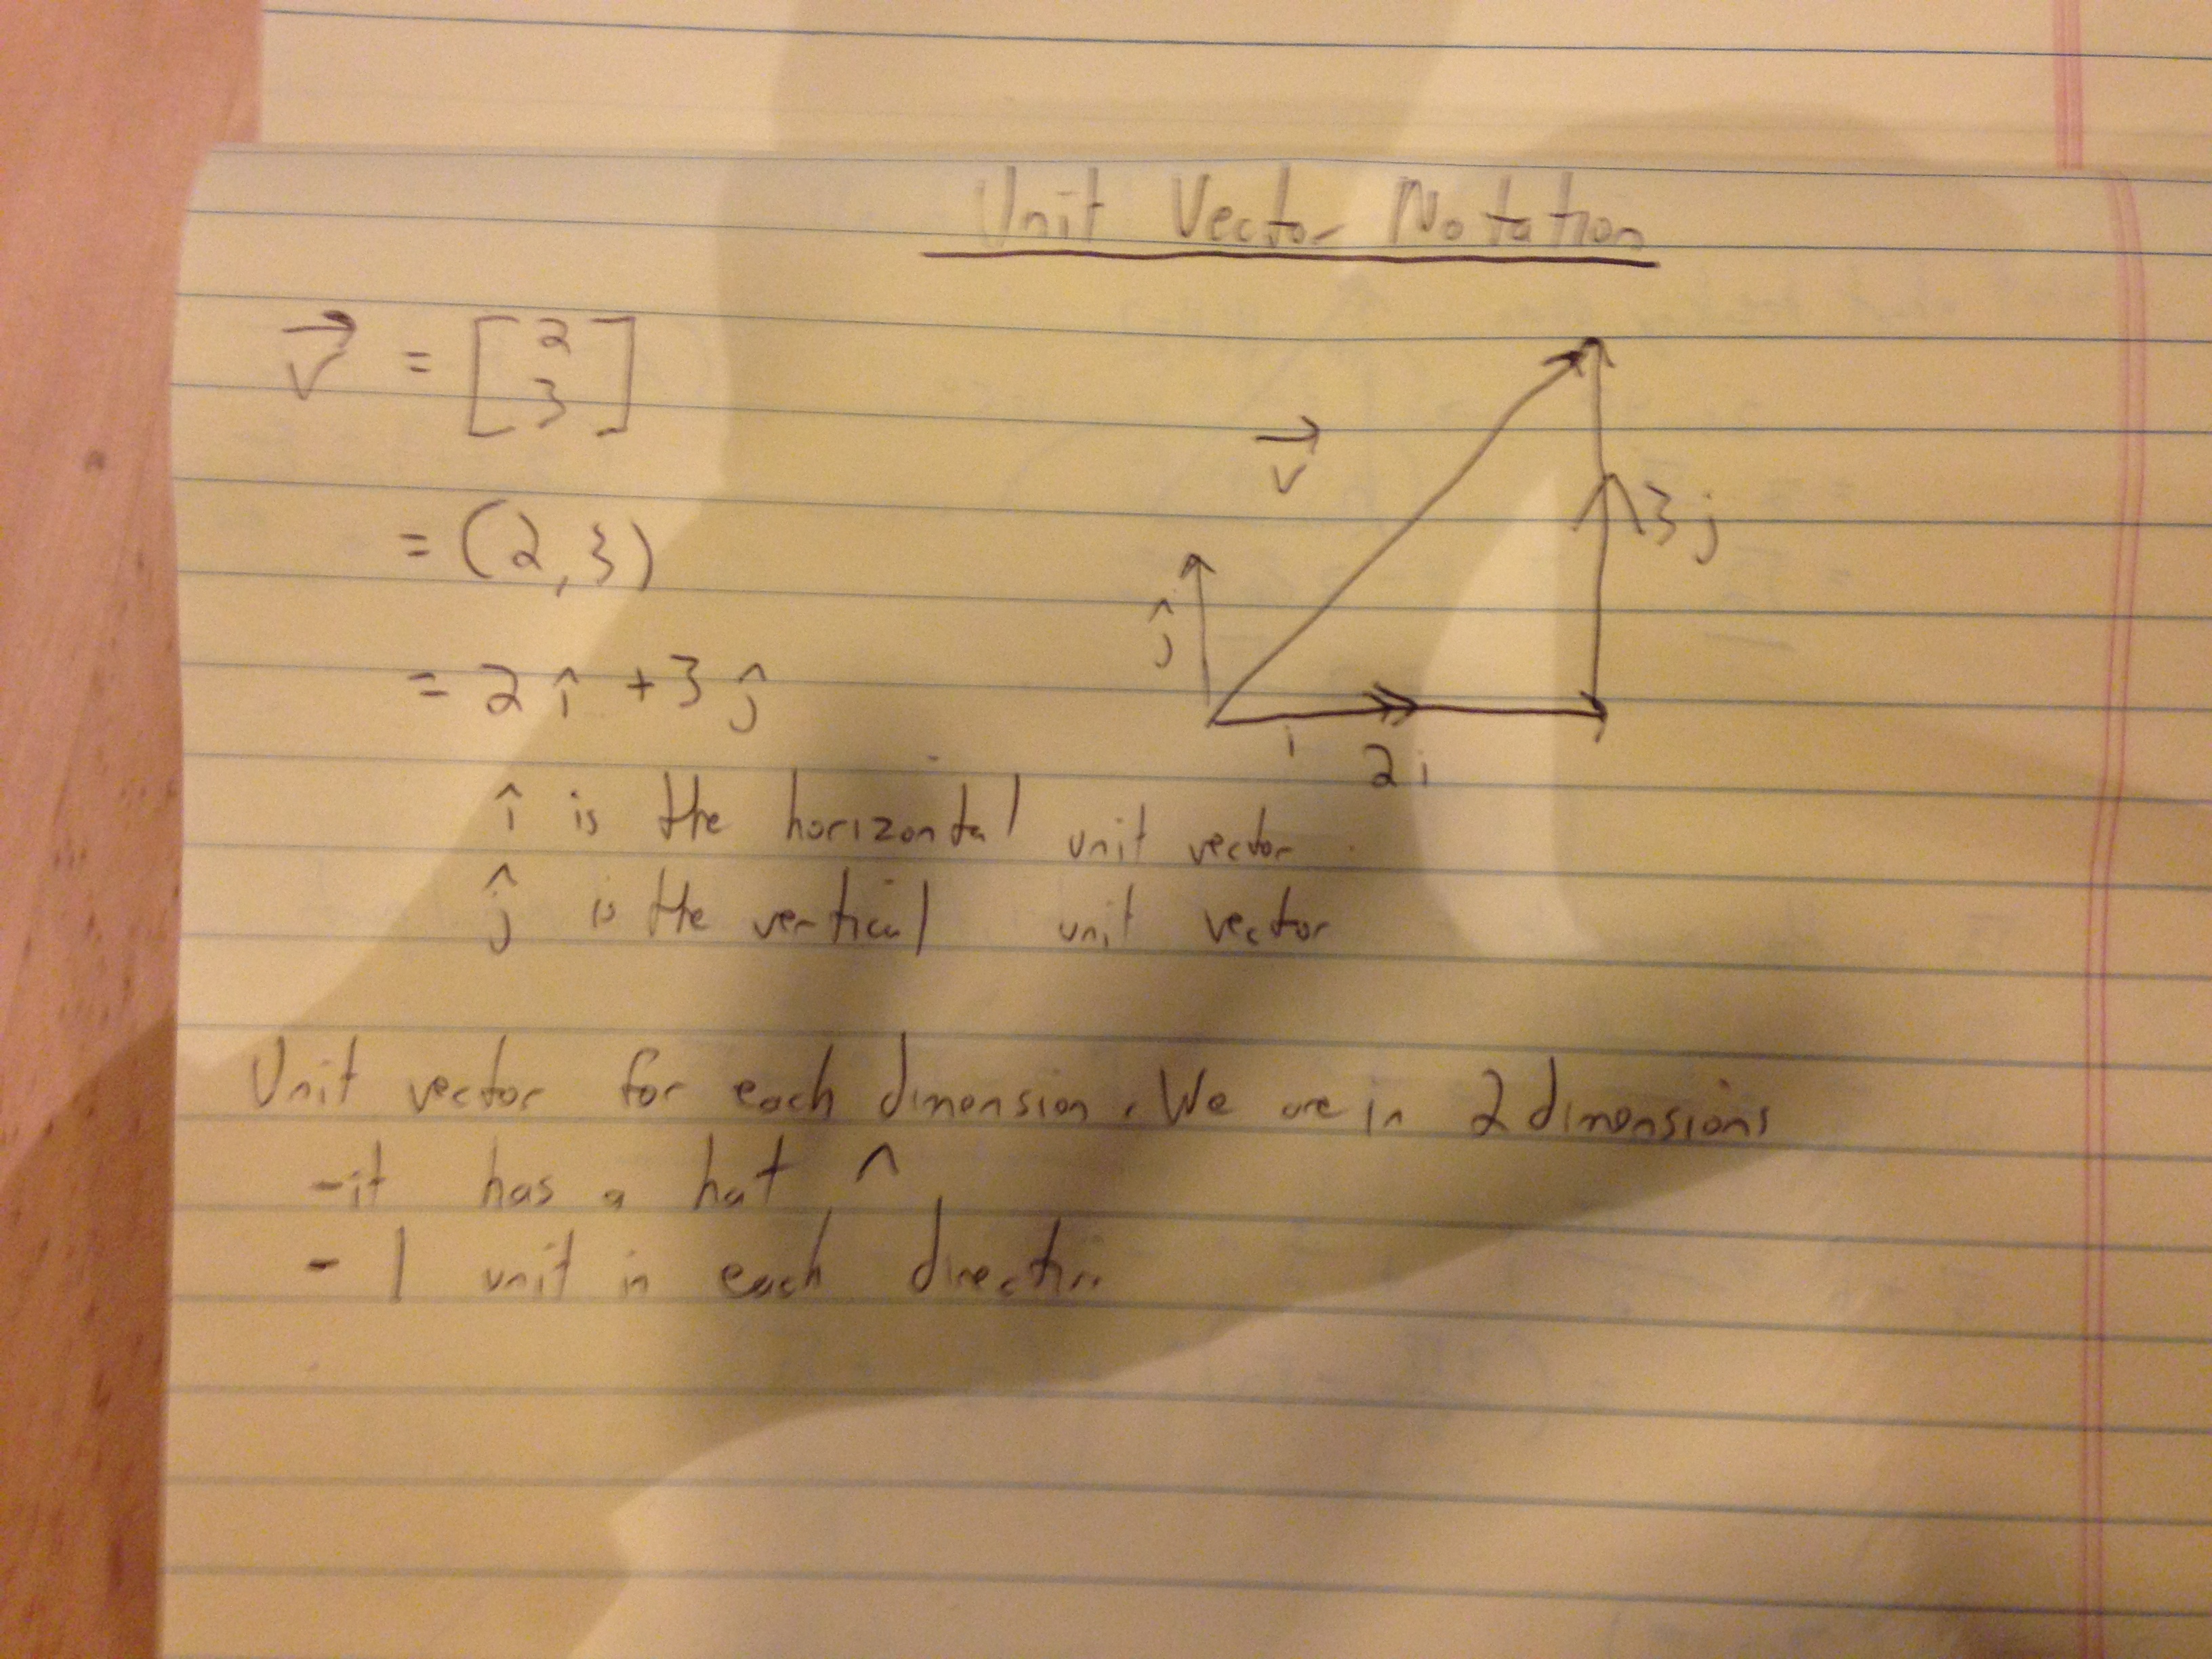 Unit Vector Notation
v⃗ = [2 3]
= (2, 3)
= 2î + 3ĵ
v⃗
ĵ
i
2i
3j
î is the horizontal unit vector
ĵ is the vertical unit vector
Unit vector for each dimension. We are in 2 dimensions
- it has a hat ^
- 1 unit in each direction